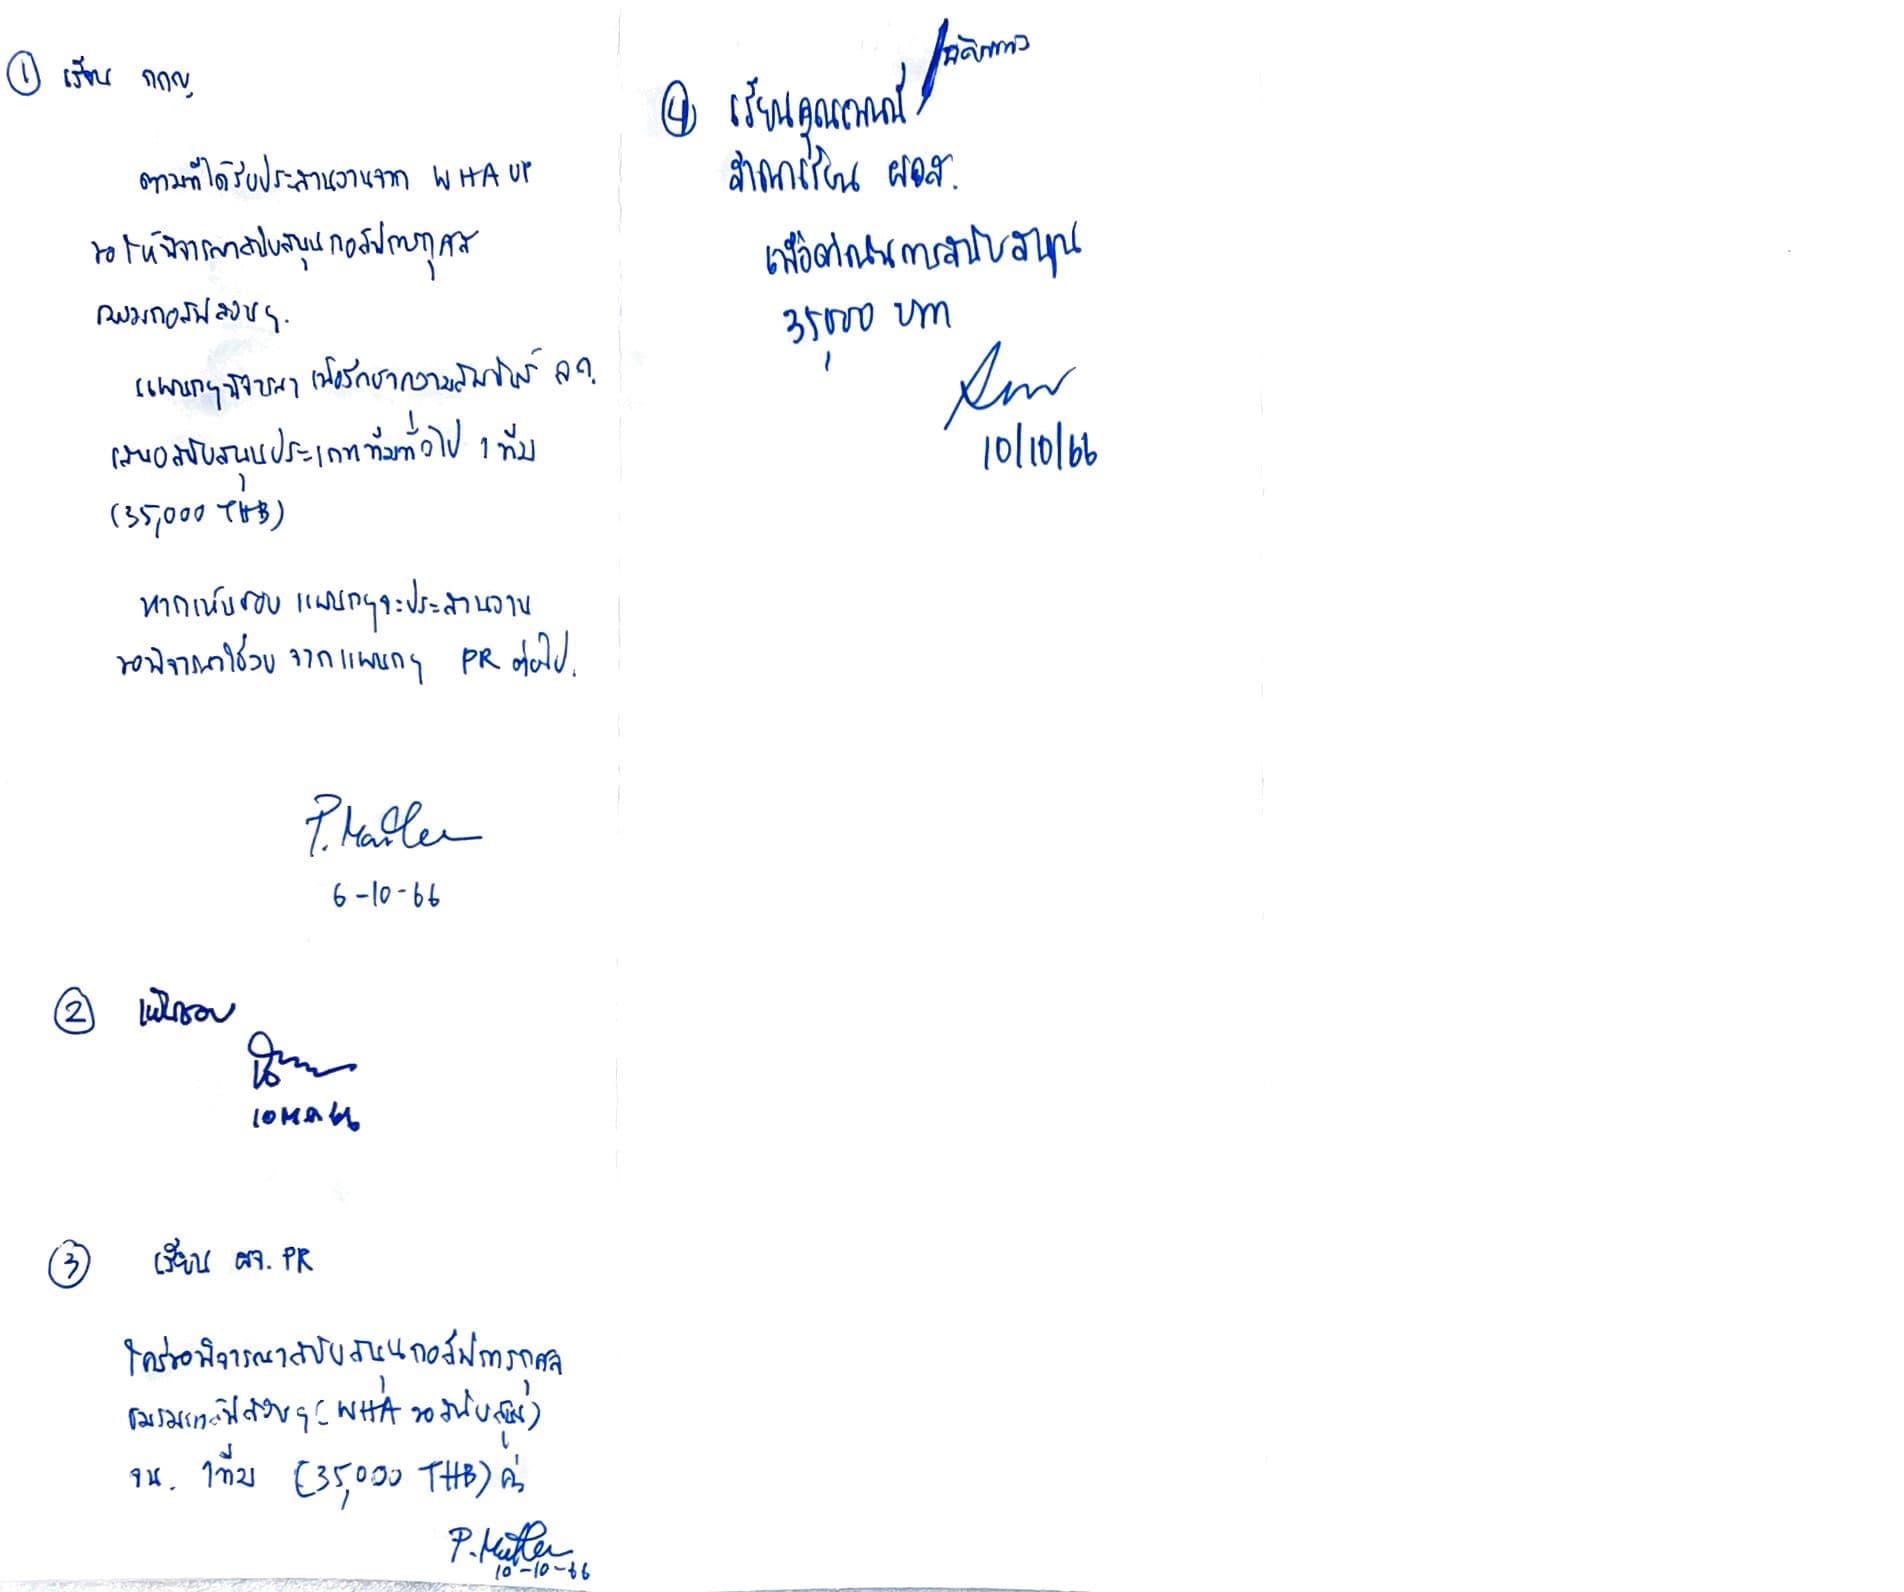 ① เรียน กกญ
ตามที่ได้รับประสานงานจาก WHA UP
ขอให้พิจารณาสนับสนุนกอล์ฟการกุศล
ชมรมกอล์ฟสงขฯ.
แผนกฯพิจารณา เพื่อรักษาความสัมพันธ์ ลค.
เสนอสนับสนุนประเภททีมทั่วไป 1 ทีม
(35,000 THB)
หากเห็นชอบ แผนกฯจะประสานงาน
ขอพิจารณาใช้งบ จากแผนกฯ PR ต่อไป.
6-10-66
② เห็นชอบ
10 ตค 66
③ เรียน ผจ. PR
ใคร่ขอพิจารณาสนับสนุนกอล์ฟการกุศล
ชมรมกอล์ฟสงขฯ (WHA ขอสนับสนุน)
จน. 1 ทีม (35,000 THB) ค่ะ
10-10-66
④ เรียนคุณ
สำเนาเรียน ผอส.
เพื่อดำเนินการสนับสนุน
35,000 บาท
10/10/66